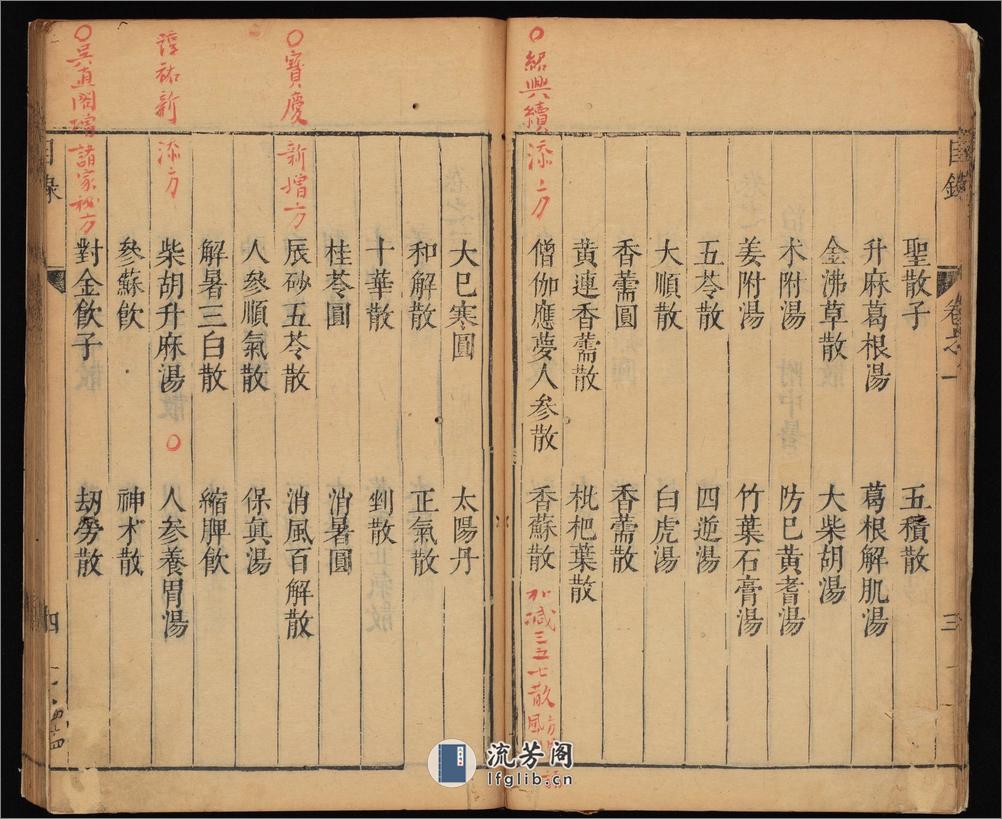 聖散子　五積散
升麻葛根湯　葛根解肌湯
金沸草散　大柴胡湯
术附湯　防巳黃耆湯
姜附湯　竹葉石膏湯
五苓散　四逆湯
大順散　白虎湯
香薷圓　香薷散
黃連香薷散　枇杷葉散
紹興續添方
僧伽應夢人參散　香蘇散
加減三五七散
大巳寒圓　太陽丹
和解散　正氣散
十華散　對散
桂苓圓　消暑圓
寶慶新增方
辰砂五苓散　消風百解散
人參順氣散　保眞湯
解暑三白散　縮脾飲
淳祐新添方
柴胡升麻湯　人參養胃湯
參蘇飲　神术散
吳直閣增諸家秘方
對金飲子　劫勞散
目錄
卷之一
三
目錄
四
流芳阁
lfglib.cn